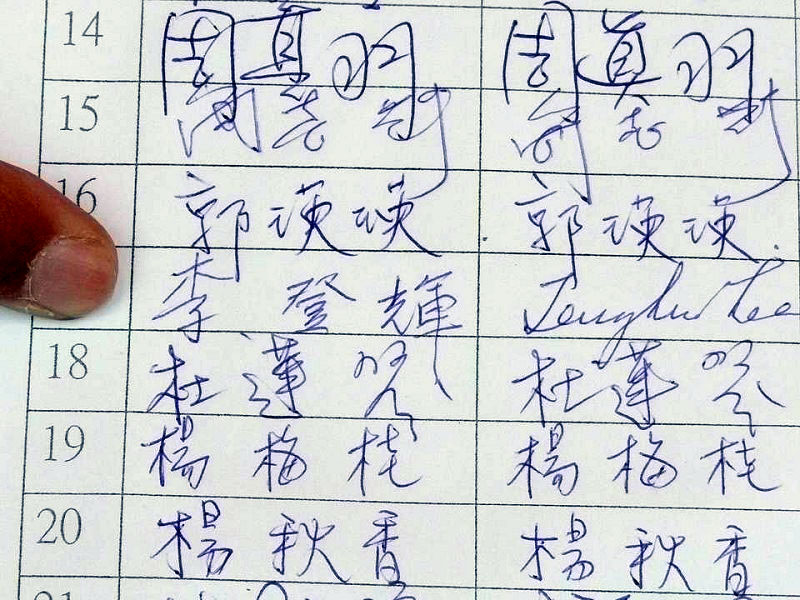 14 周真羽 周真羽
15 周
16 郭瑛瑛 郭瑛瑛
李登輝 Tenghui Lee
18 杜蓮 杜蓮
19 楊梅枝 楊梅枝
20 楊秋香 楊秋香
21